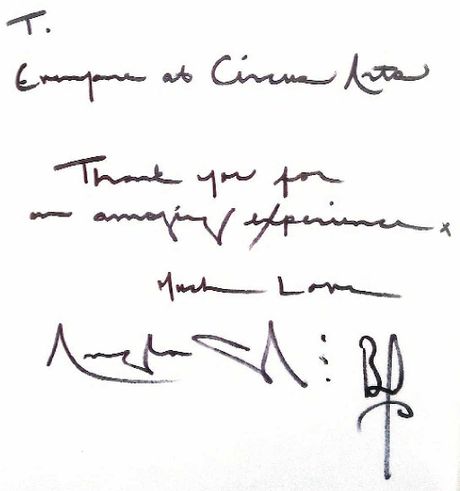 T.
Everyone at Circus Arts
Thank you for
an amazing experience x
Much Love